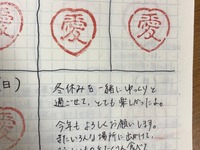 愛 愛 愛
日)
冬休みを一緒にゆっくりと
過ごせて、とても楽しかったよ。
今年もよろしくお願いします。
またいろんな場所に出かけて、